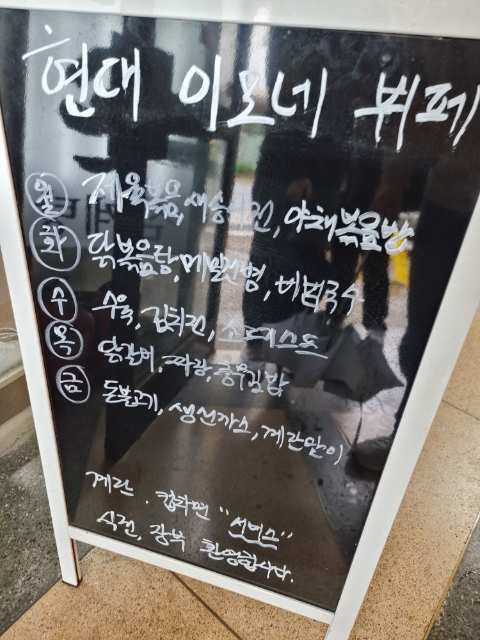 현대 이모네 뷔페
월 제육볶음, 야채볶음밥
화 닭볶음탕, 메밀전병, 비빔국수
수 수육, 김치전, 소떡소떡
목 닭갈비, 짜장, 충무김밥
금 돈불고기, 생선까스, 계란말이
계란, 컵라면 "서비스"
식권, 장부 환영합니다.